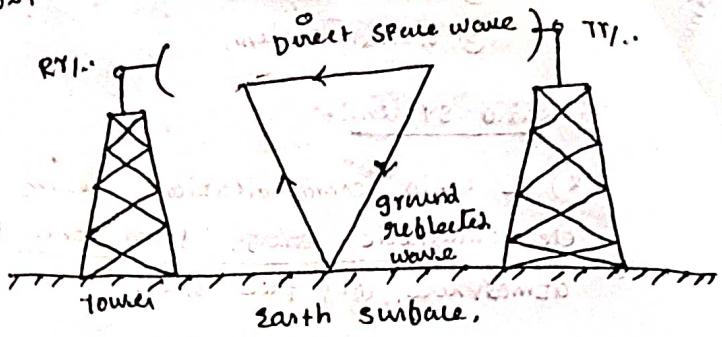 Direct space wave
Rx/..
Tx/..
ground
reflected
wave
Tower
Earth surface.